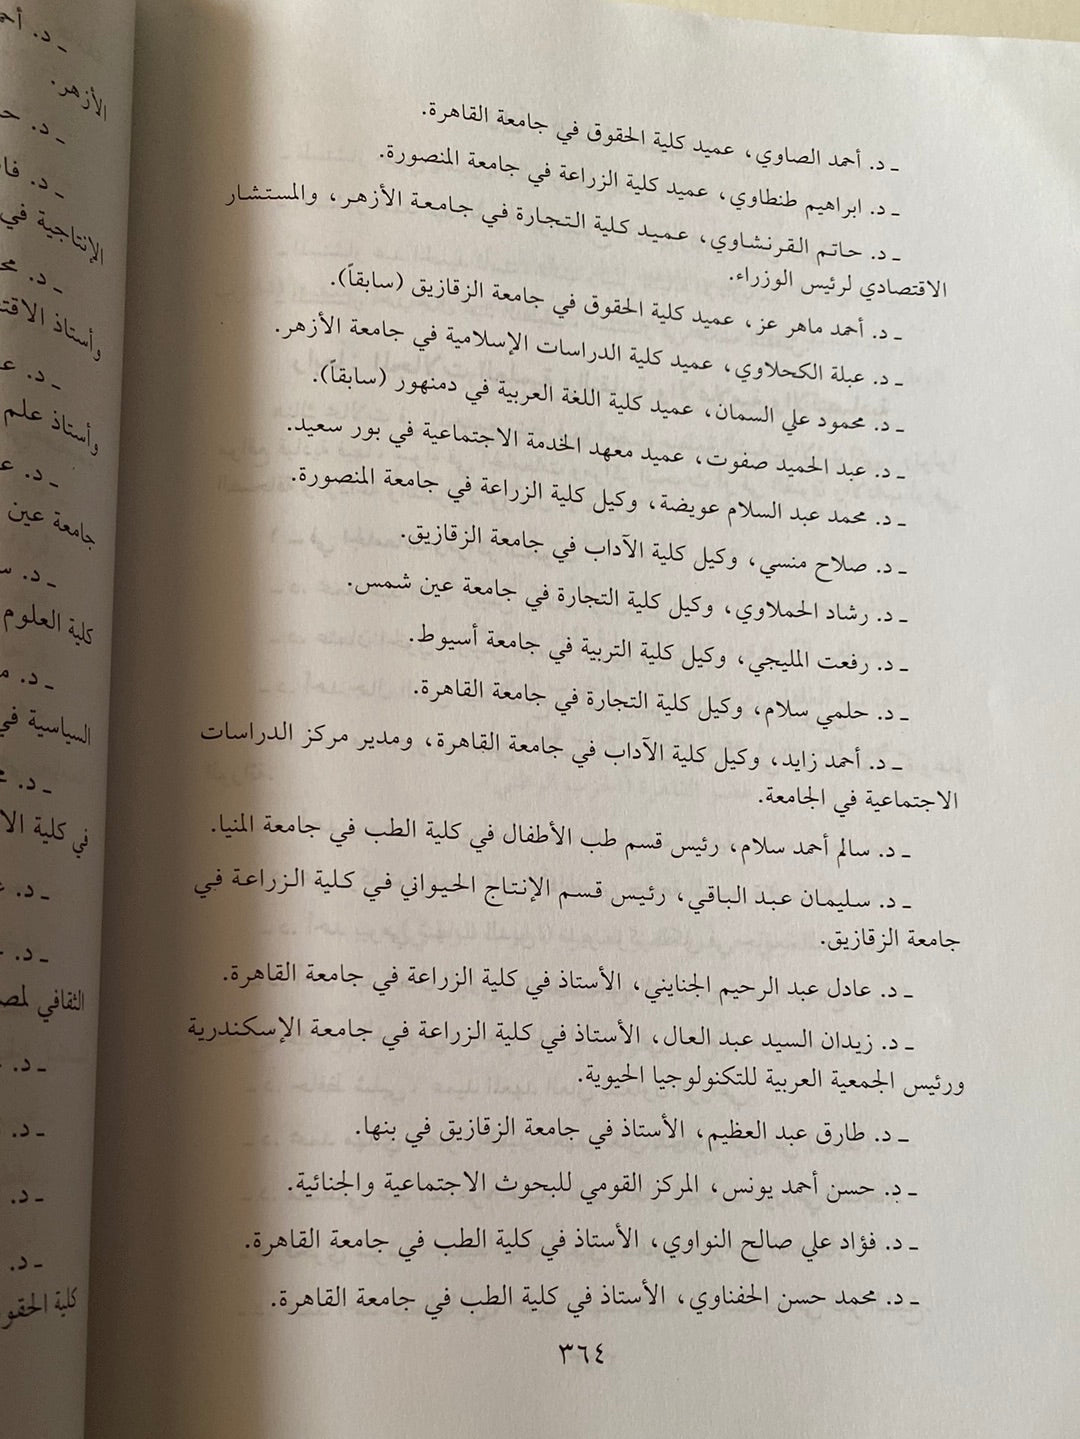 ـ د. أحمد الصاوي، عميد كلية الحقوق في جامعة القاهرة.
ـ د. ابراهيم طنطاوي، عميد كلية الزراعة في جامعة المنصورة.
ـ د. حاتم القرنشاوي، عميد كلية التجارة في جامعة الأزهر، والمستشار
الاقتصادي لرئيس الوزراء.
ـ د. أحمد ماهر عز، عميد كلية الحقوق في جامعة الزقازيق (سابقاً).
ـ د. عبلة الكحلاوي، عميد كلية الدراسات الإسلامية في جامعة الأزهر.
ـ د. محمود علي السمان، عميد كلية اللغة العربية في دمنهور (سابقاً).
ـ د. عبد الحميد صفوت، عميد معهد الخدمة الاجتماعية في بور سعيد.
ـ د. محمد عبد السلام عويضة، وكيل كلية الزراعة في جامعة المنصورة.
ـ د. صلاح منسي، وكيل كلية الآداب في جامعة الزقازيق.
ـ د. رشاد الحملاوي، وكيل كلية التجارة في جامعة عين شمس.
ـ د. رفعت المليجي، وكيل كلية التربية في جامعة أسيوط.
ـ د. حلمي سلام، وكيل كلية التجارة في جامعة القاهرة.
ـ د. أحمد زايد، وكيل كلية الآداب في جامعة القاهرة، ومدير مركز الدراسات
الاجتماعية في الجامعة.
ـ د. سالم أحمد سلام، رئيس قسم طب الأطفال في كلية الطب في جامعة المنيا.
ـ د. سليمان عبد الباقي، رئيس قسم الإنتاج الحيواني في كلية الزراعة في
جامعة الزقازيق.
ـ د. عادل عبد الرحيم الجنايني، الأستاذ في كلية الزراعة في جامعة القاهرة.
ـ د. زيدان السيد عبد العال، الأستاذ في كلية الزراعة في جامعة الإسكندرية
ورئيس الجمعية العربية للتكنولوجيا الحيوية.
ـ د. طارق عبد العظيم، الأستاذ في جامعة الزقازيق في بنها.
ـ د. حسن أحمد يونس، المركز القومي للبحوث الاجتماعية والجنائية.
ـ د. فؤاد علي صالح النواوي، الأستاذ في كلية الطب في جامعة القاهرة.
ـ د. محمد حسن الحفناوي، الأستاذ في كلية الطب في جامعة القاهرة.
٣٦٤
ـ د.
الأزهر.
ـ د.
ـ د.
الإنتاجية في
ـ د.
وأستاذ
ـ د.
وأستاذ علم
ـ د.
جامعة عين
ـ د.
كلية العلوم
ـ د.
السياسية في
ـ د.
في كلية
ـ د.
ـ د.
الثقافي
ـ د.
ـ د.
ـ د.
ـ د.
كلية